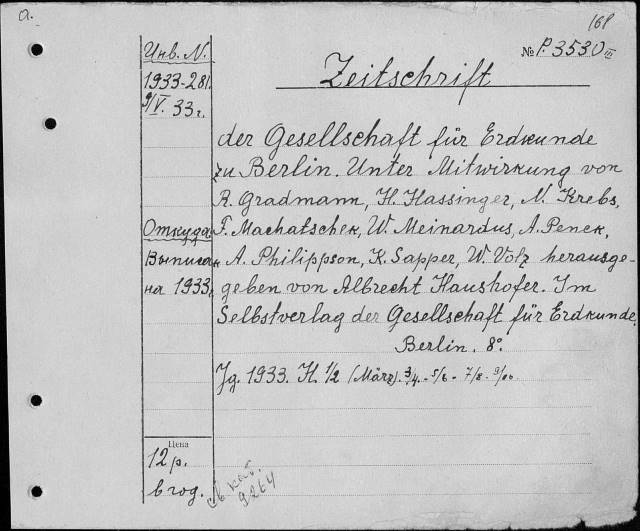 a.
168
№ P.3530 III
Инв. N.
1933-281.
9/V. 33 г.
Откуда
Выписа
на 1933 г.
Цена
12 р.
в год.
Zeitschrift
der Gesellschaft für Erdkunde
zu Berlin. Unter Mitwirkung von
R. Gradmann, H. Hassinger, N. Krebs,
F. Machatschek, W. Meinardus, A. Penck,
A. Philippson, K. Sapper, W. Volz herausge-
geben von Albrecht Haushofer. Im
Selbstverlag der Gesellschaft für Erdkunde.
Berlin. 8°.
Jg. 1933. H. 1/2 (März). 3/4. - 5/6 - 7/8 - 9/10
св. кат.
9264